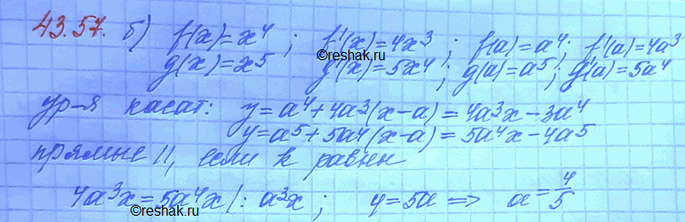 43.57. б) f(x)=x⁴ ; f'(x)=4x³ ; f(a)=a⁴; f'(a)=4a³
©reshak.ru
g(x)=x⁵ g'(x)=5x⁴; g(a)=a⁵; g'(a)=5a⁴
ур-я касат: y=a⁴+4a³(x-a)=4a³x-3a⁴
y=a⁵+5a⁴(x-a)=5a⁴x-4a⁵
прямые ||, если k равны
4a³x=5a⁴x |: a³x ; 4=5a => a=4/5
©reshak.ru